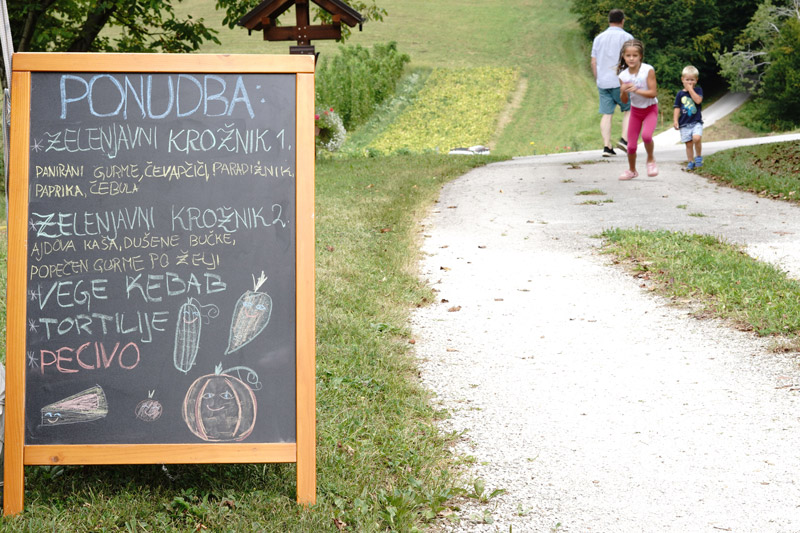 PONUDBA:
*ZELENJAVNI KROŽNIK 1.
PANIRANI GURME, ČEVAPČIČI, PARADIŽNIK,
PAPRIKA, ČEBULA
*ZELENJAVNI KROŽNIK 2.
AJDOVA KAŠA, DUŠENE BUČKE,
POPEČEN GURME PO ŽELJI
*VEGE KEBAB
*TORTILIJE
*PECIVO